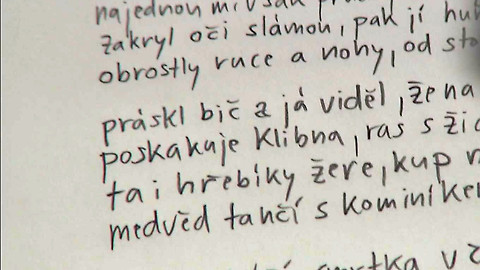 najednou
zakryl oči slámou, pak jí
obrostly ruce a nohy, od
práskl bič a já viděl, že na
poskakuje Klibna, ras s
ta i hřebíky žere, kup
medvěd tančí s
v